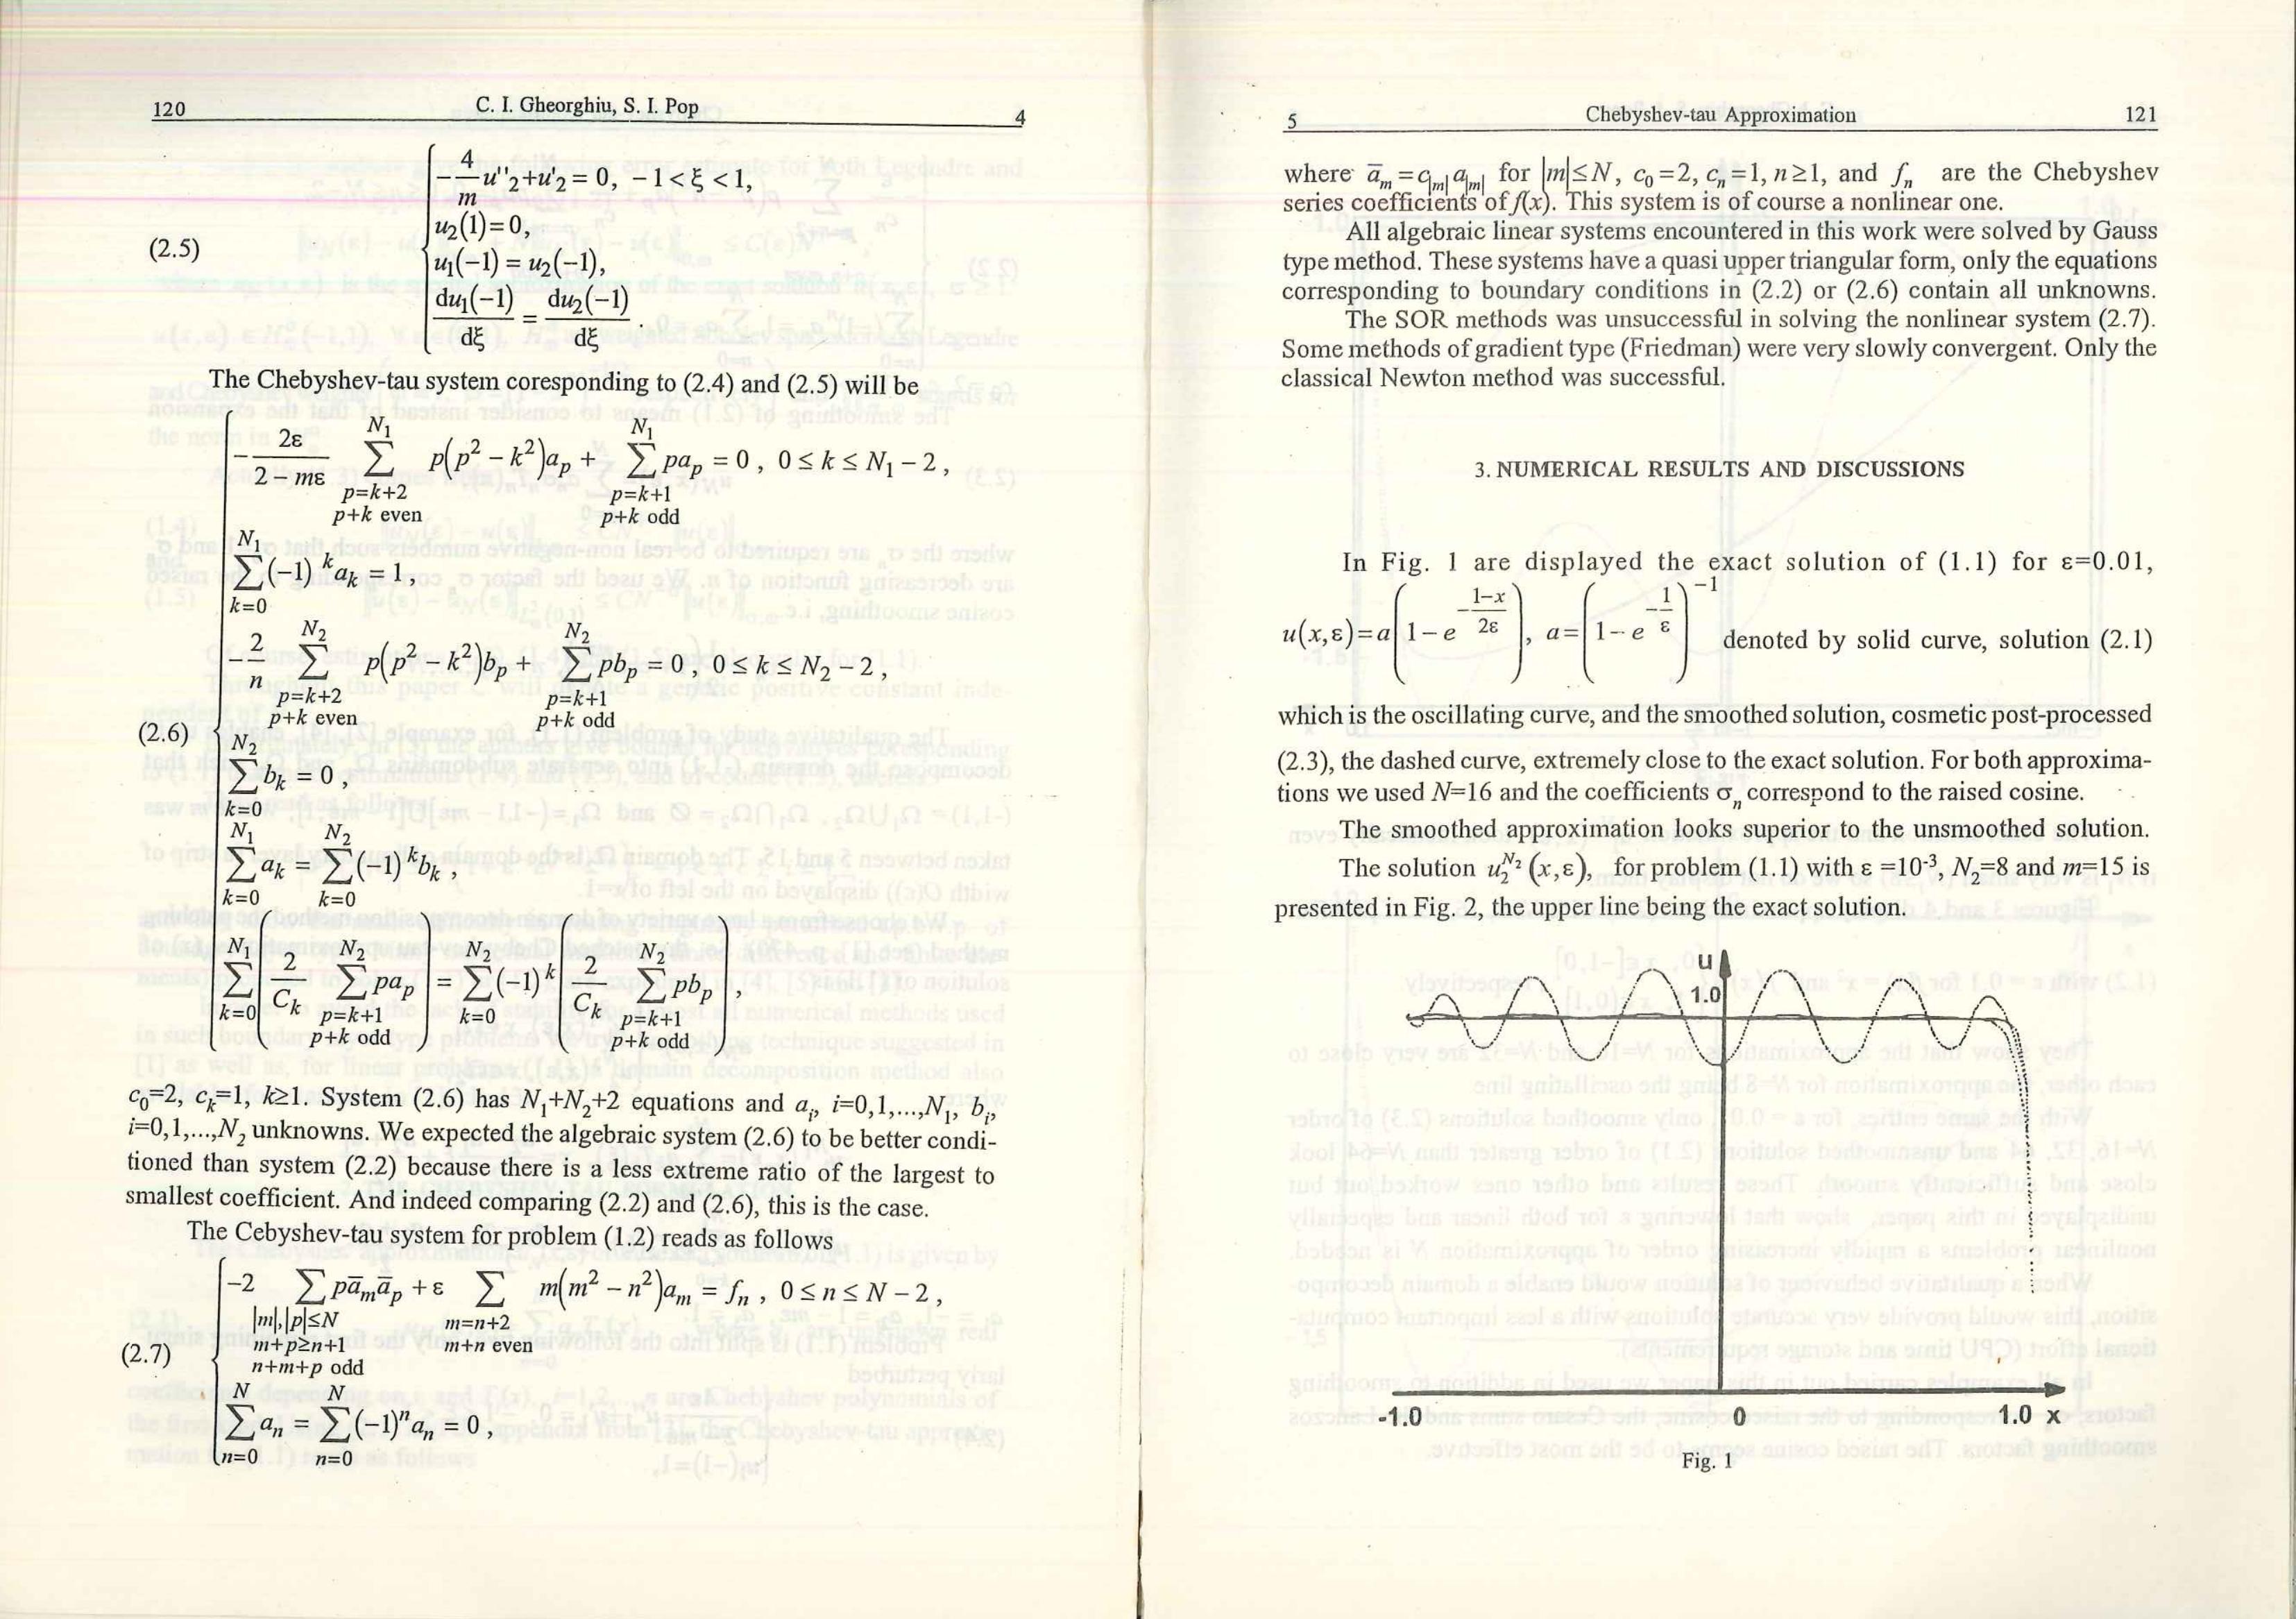 120
C. I. Gheorghiu, S. I. Pop
4
(2.5)
-4/m u''₂+u'₂ = 0, -1 < ξ < 1,
u₂(1)=0,
u₁(-1) = u₂(-1),
du₁(-1)/dξ = du₂(-1)/dξ .
The Chebyshev-tau system coresponding to (2.4) and (2.5) will be
(2.6)
- 2ε/(2 - mε) ∑_{p=k+2, p+k even}^{N₁} p(p² - k²)a_p + ∑_{p=k+1, p+k odd}^{N₁} pa_p = 0 , 0 ≤ k ≤ N₁ - 2 ,
∑_{k=0}^{N₁} (-1)^k a_k = 1 ,
- 2/n ∑_{p=k+2, p+k even}^{N₂} p(p² - k²)b_p + ∑_{p=k+1, p+k odd}^{N₂} pb_p = 0 , 0 ≤ k ≤ N₂ - 2 ,
∑_{k=0}^{N₂} b_k = 0 ,
∑_{k=0}^{N₁} a_k = ∑_{k=0}^{N₂} (-1)^k b_k ,
∑_{k=0}^{N₁} ( 2/C_k ∑_{p=k+1, p+k odd}^{N₂} pa_p ) = ∑_{k=0}^{N₂} (-1)^k ( 2/C_k ∑_{p=k+1, p+k odd}^{N₂} pb_p ) ,
c₀=2, c_k=1, k≥1. System (2.6) has N₁+N₂+2 equations and a_i, i=0,1,...,N₁, b_i,
i=0,1,...,N₂ unknowns. We expected the algebraic system (2.6) to be better condi-
tioned than system (2.2) because there is a less extreme ratio of the largest to
smallest coefficient. And indeed comparing (2.2) and (2.6), this is the case.
The Cebyshev-tau system for problem (1.2) reads as follows
(2.7)
-2 ∑_{|m|,|p|≤N, m+p≥n+1, n+m+p odd} pā_m ā_p + ε ∑_{m=n+2, m+n even} m(m² - n²)a_m = f_n , 0 ≤ n ≤ N - 2 ,
∑_{n=0}^{N} a_n = ∑_{n=0}^{N} (-1)^n a_n = 0 ,
5
Chebyshev-tau Approximation
121
where ā_m = c_|m| a_|m| for |m| ≤ N, c₀=2, c_n=1, n≥1, and f_n are the Chebyshev
series coefficients of f(x). This system is of course a nonlinear one.
All algebraic linear systems encountered in this work were solved by Gauss
type method. These systems have a quasi upper triangular form, only the equations
corresponding to boundary conditions in (2.2) or (2.6) contain all unknowns.
The SOR methods was unsuccessful in solving the nonlinear system (2.7).
Some methods of gradient type (Friedman) were very slowly convergent. Only the
classical Newton method was successful.
3. NUMERICAL RESULTS AND DISCUSSIONS
In Fig. 1 are displayed the exact solution of (1.1) for ε=0.01,
u(x,ε)=a(1 - e^{-(1-x)/2ε}), a=(1 - e^{-1/ε})^{-1} denoted by solid curve, solution (2.1)
which is the oscillating curve, and the smoothed solution, cosmetic post-processed
(2.3), the dashed curve, extremely close to the exact solution. For both approxima-
tions we used N=16 and the coefficients σ_n correspond to the raised cosine.
The smoothed approximation looks superior to the unsmoothed solution.
The solution u₂^{N₂} (x,ε), for problem (1.1) with ε =10⁻³, N₂=8 and m=15 is
presented in Fig. 2, the upper line being the exact solution.
u
1.0
-1.0
0
1.0 x
Fig. 1